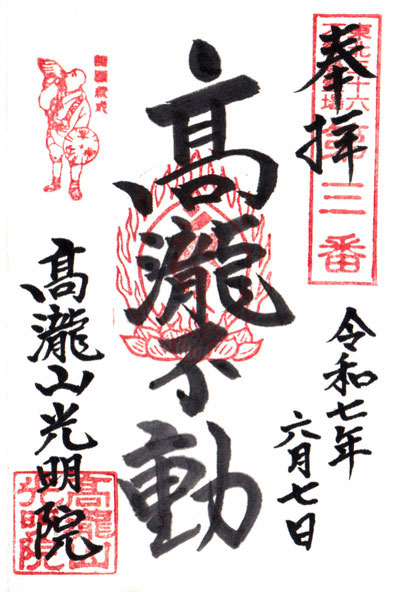 奉拝
第三番
令和七年
六月七日
髙瀧不動
髙瀧山光明院
髙瀧山
光明院